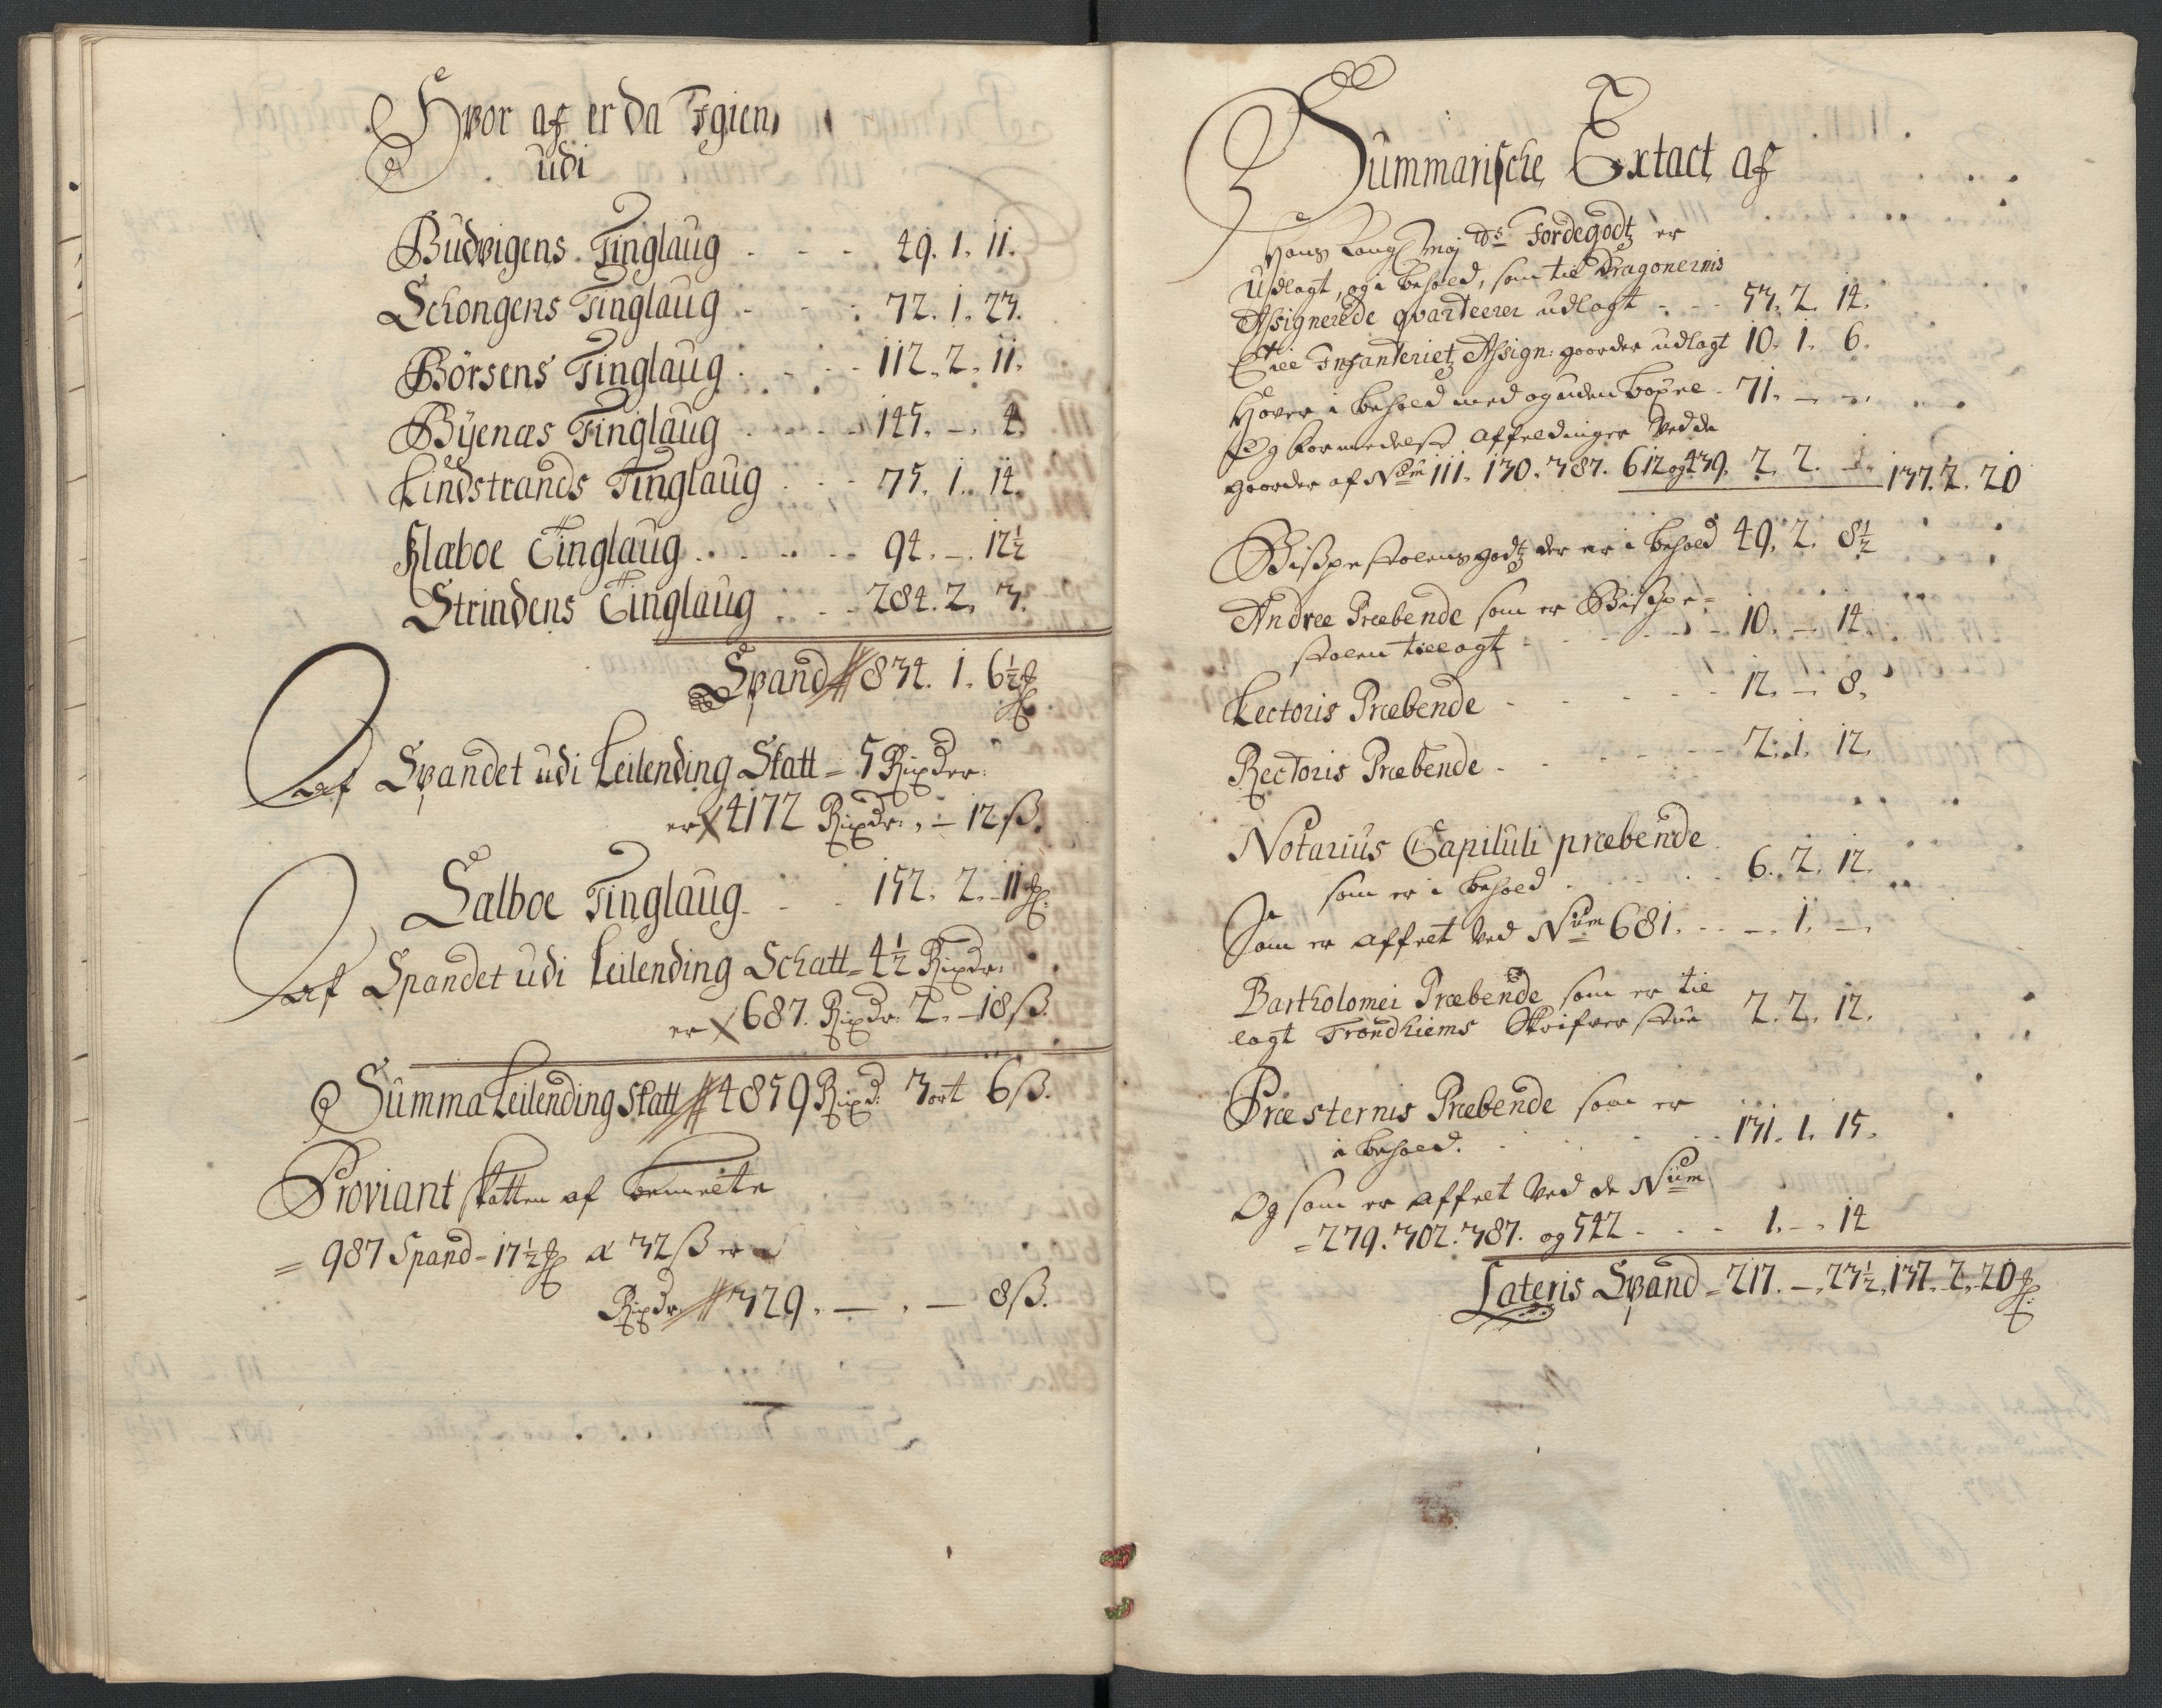 Hvor af er da Igien
udi
Budvigens Tinglaug - - - 49. 1. 11.
Schongens Tinglaug - - - 72. 1. 23.
Börsens Tinglaug - - - 112. 2. 11.
Byenæs Tinglaug - - - 145. - 4.
Lindstrands Tinglaug - - - 75. 1. 14.
Klæboe Tinglaug - - - 94. - 12½
Strindens Tinglaug - - - 284. 2. 3.
Spand 834. 1. 6½
af Spandet udi Leilending Skatt = 5 Rixdr:
er 4172 Rixdr: - 12 ß.
Sælboe Tinglaug - - - 152. 2. 11
af Spandet udi Leilending Schatt = 4½ Rixdr:
er 687. Rixdr: 2. - 18 ß.
Summa Leilending skatt 4859 Rixd: 3 ort 6 ß.
Proviant skatten af bemelte
= 987 Spand - 17½ a 32 ß er
Rixdr 329. - . - 8 ß.
Summarische Extact af
Hans Kongl Maj ts Jordegodtz er
Udlagt, og i behold, som til Dragonernis
Assignerede qvarteerer udlagt - - - 53. 2. 14.
Till Infanteriet Assign: goorder udlagt 10. 1. 6.
Hover i behold med og uden boxel - 71. - -
Og formedelst affeldinger ved de
goorder af Num 111. 130. 387. 612 og 439. 2. 2. - 137. 2. 20
Bispestolens godtz der er i behold 49. 2. 8½
Andreæ Præbende som er Bispe=
stolen tillagt - - - 10. - 14.
Lectoris Præbende - - - 12. - 8.
Rectoris Præbende - - - 2. 1. 12.
Notarius Capituli præbende
som er i behold - - - 6. 2. 12.
Som er affelt ved Num 681. - - - 1. -
Bartholomei Præbende som er til
lagt Trondhiems Skrifver stue 2. 2. 12.
Præsternis Præbende som er
i behold. - - - 131. 1. 15.
Og som er affelt ved de Num
= 279. 302. 387. og 542 - - - 1. - 14
Lateris Spand = 217. - 23½. 137. 2. 20